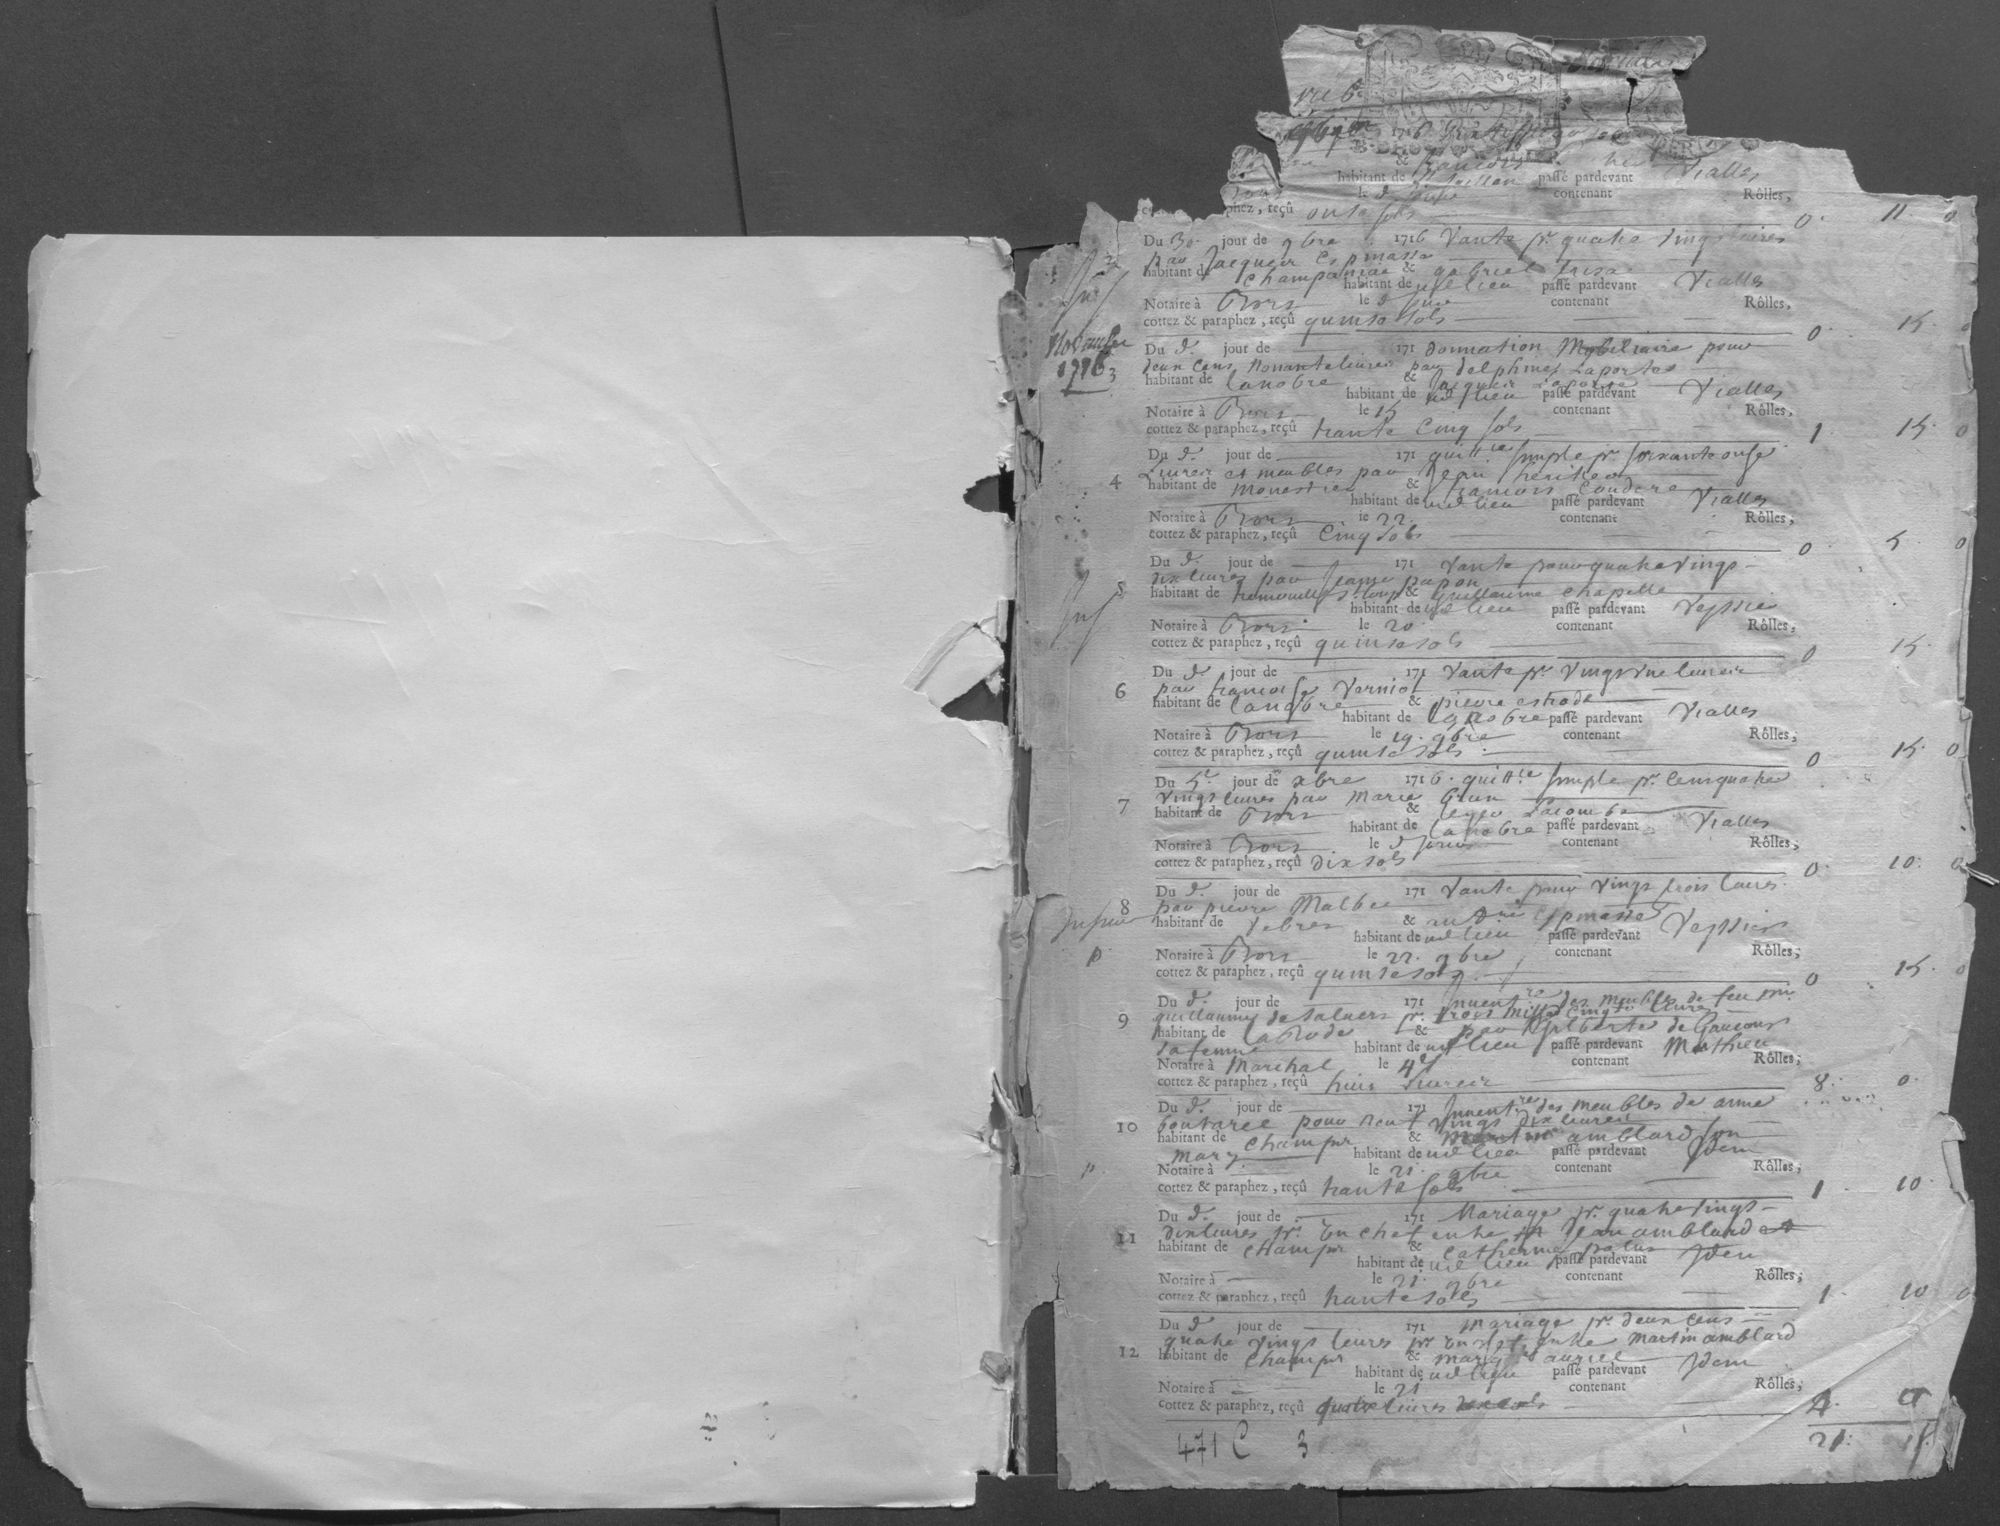 1716
& françois
habitant de passé pardevant Vialles
le d. jour contenant Rôlles,
phez, reçû onze sols 0. 11 0
Du 30. jour de 9bre 1716 Vante pr. quatre vingt livres
par Jacques Espinasse
habitant de Champaniac & gabriel
habitant de md lieu passé pardevant Vialles
Notaire à Bors le d. jour contenant Rôlles,
cottez & paraphez, reçû quinse sols 0. 15. 0
Novembre
1716
3
Du d. jour de 171 donnation Mobiliaire pour
deux cens nonante livres par delphine Laporte
habitant de Lanobre & Jacques Laporte
habitant de md lieu passé pardevant Vialles
Notaire à Bors le 15 contenant Rôlles,
cottez & paraphez, reçû trante cinq sols 1 15. 0
Du d. jour de 171 quittce simple pr. soixante onse
4 Livres et meubles par Jean héritier
habitant de Monestier & françois Couderc
habitant de md lieu passé pardevant Vialles
Notaire à Bors le 22. contenant Rôlles,
cottez & paraphez, reçû Cinq sols 0 5. 0
Du d. jour de 171 Vante pour quatre vings
5 dix livres par Jeanne papon
habitant de tremouille St loup & guillaume chapelle
habitant de md lieu passé pardevant Veyssier
Notaire à Bors le 20. contenant Rôlles,
cottez & paraphez, reçû quinse sols 0 15.
Du d. jour de 171 Vante pr. Vings une livres
6 par françoise Verniol
habitant de Lanobre & pierre estrade
habitant de Lanobre passé pardevant Vialles
Notaire à Bors le 19. 9bre contenant Rôlles,
cottez & paraphez, reçû quinse sols 0 15. 0
Du 5e. jour de xbre 1716. quittce simple pr. Cens quatre
7 vings livres par Marie brun
habitant de Bors & leger Lacombe
habitant de Lanobre passé pardevant Vialles
Notaire à Bors le d. jour contenant Rôlles,
cottez & paraphez, reçû dix sols 0. 10. 0
Du d. jour de 171 Vante pour Vings trois livres
8 par pierre Malbec
habitant de Vebres & andré Espinasse
habitant de md lieu passé pardevant Veyssier
Notaire à Bors le 22. 9bre contenant Rôlles,
cottez & paraphez, reçû quinse sols 0 15. 0
Du d. jour de 171 Inventre des meubles de feu mre
9 guillaume de Salvers pr. trois mille Cinq livres
habitant de La Rode & par Gilberte de
sa femme habitant de md lieu passé pardevant Mathieu
Notaire à Marchal le 4e contenant Rôlles,
cottez & paraphez, reçû huit Livres 8. 0.
Du d. jour de 171 Inventre des meubles de anne
10 boutarel pour neuf vings dix livres
habitant de Champr & Martin amblard son
mary habitant de md lieu passé pardevant Idem
Notaire à le 21. 9bre contenant Rôlles,
cottez & paraphez, reçû trante sols 1 10.
Du d. jour de 171 Mariage pr. quatre vings
11 dix livres pr. En chef entre Jean amblard
habitant de Champr & Catherine palus
habitant de md lieu passé pardevant Idem
Notaire à le 21. 9bre contenant Rôlles,
cottez & paraphez, reçû trante sols 1. 10 0
Du d. jour de 171 mariage pr. deux cens
quatre vings livres pr. En chef Entre Martin amblard
12 habitant de Champr & Margte auriel
habitant de md lieu passé pardevant Idem
Notaire à le 21 contenant Rôlles,
cottez & paraphez, reçû quatre livres 4.
471 C 3 21.